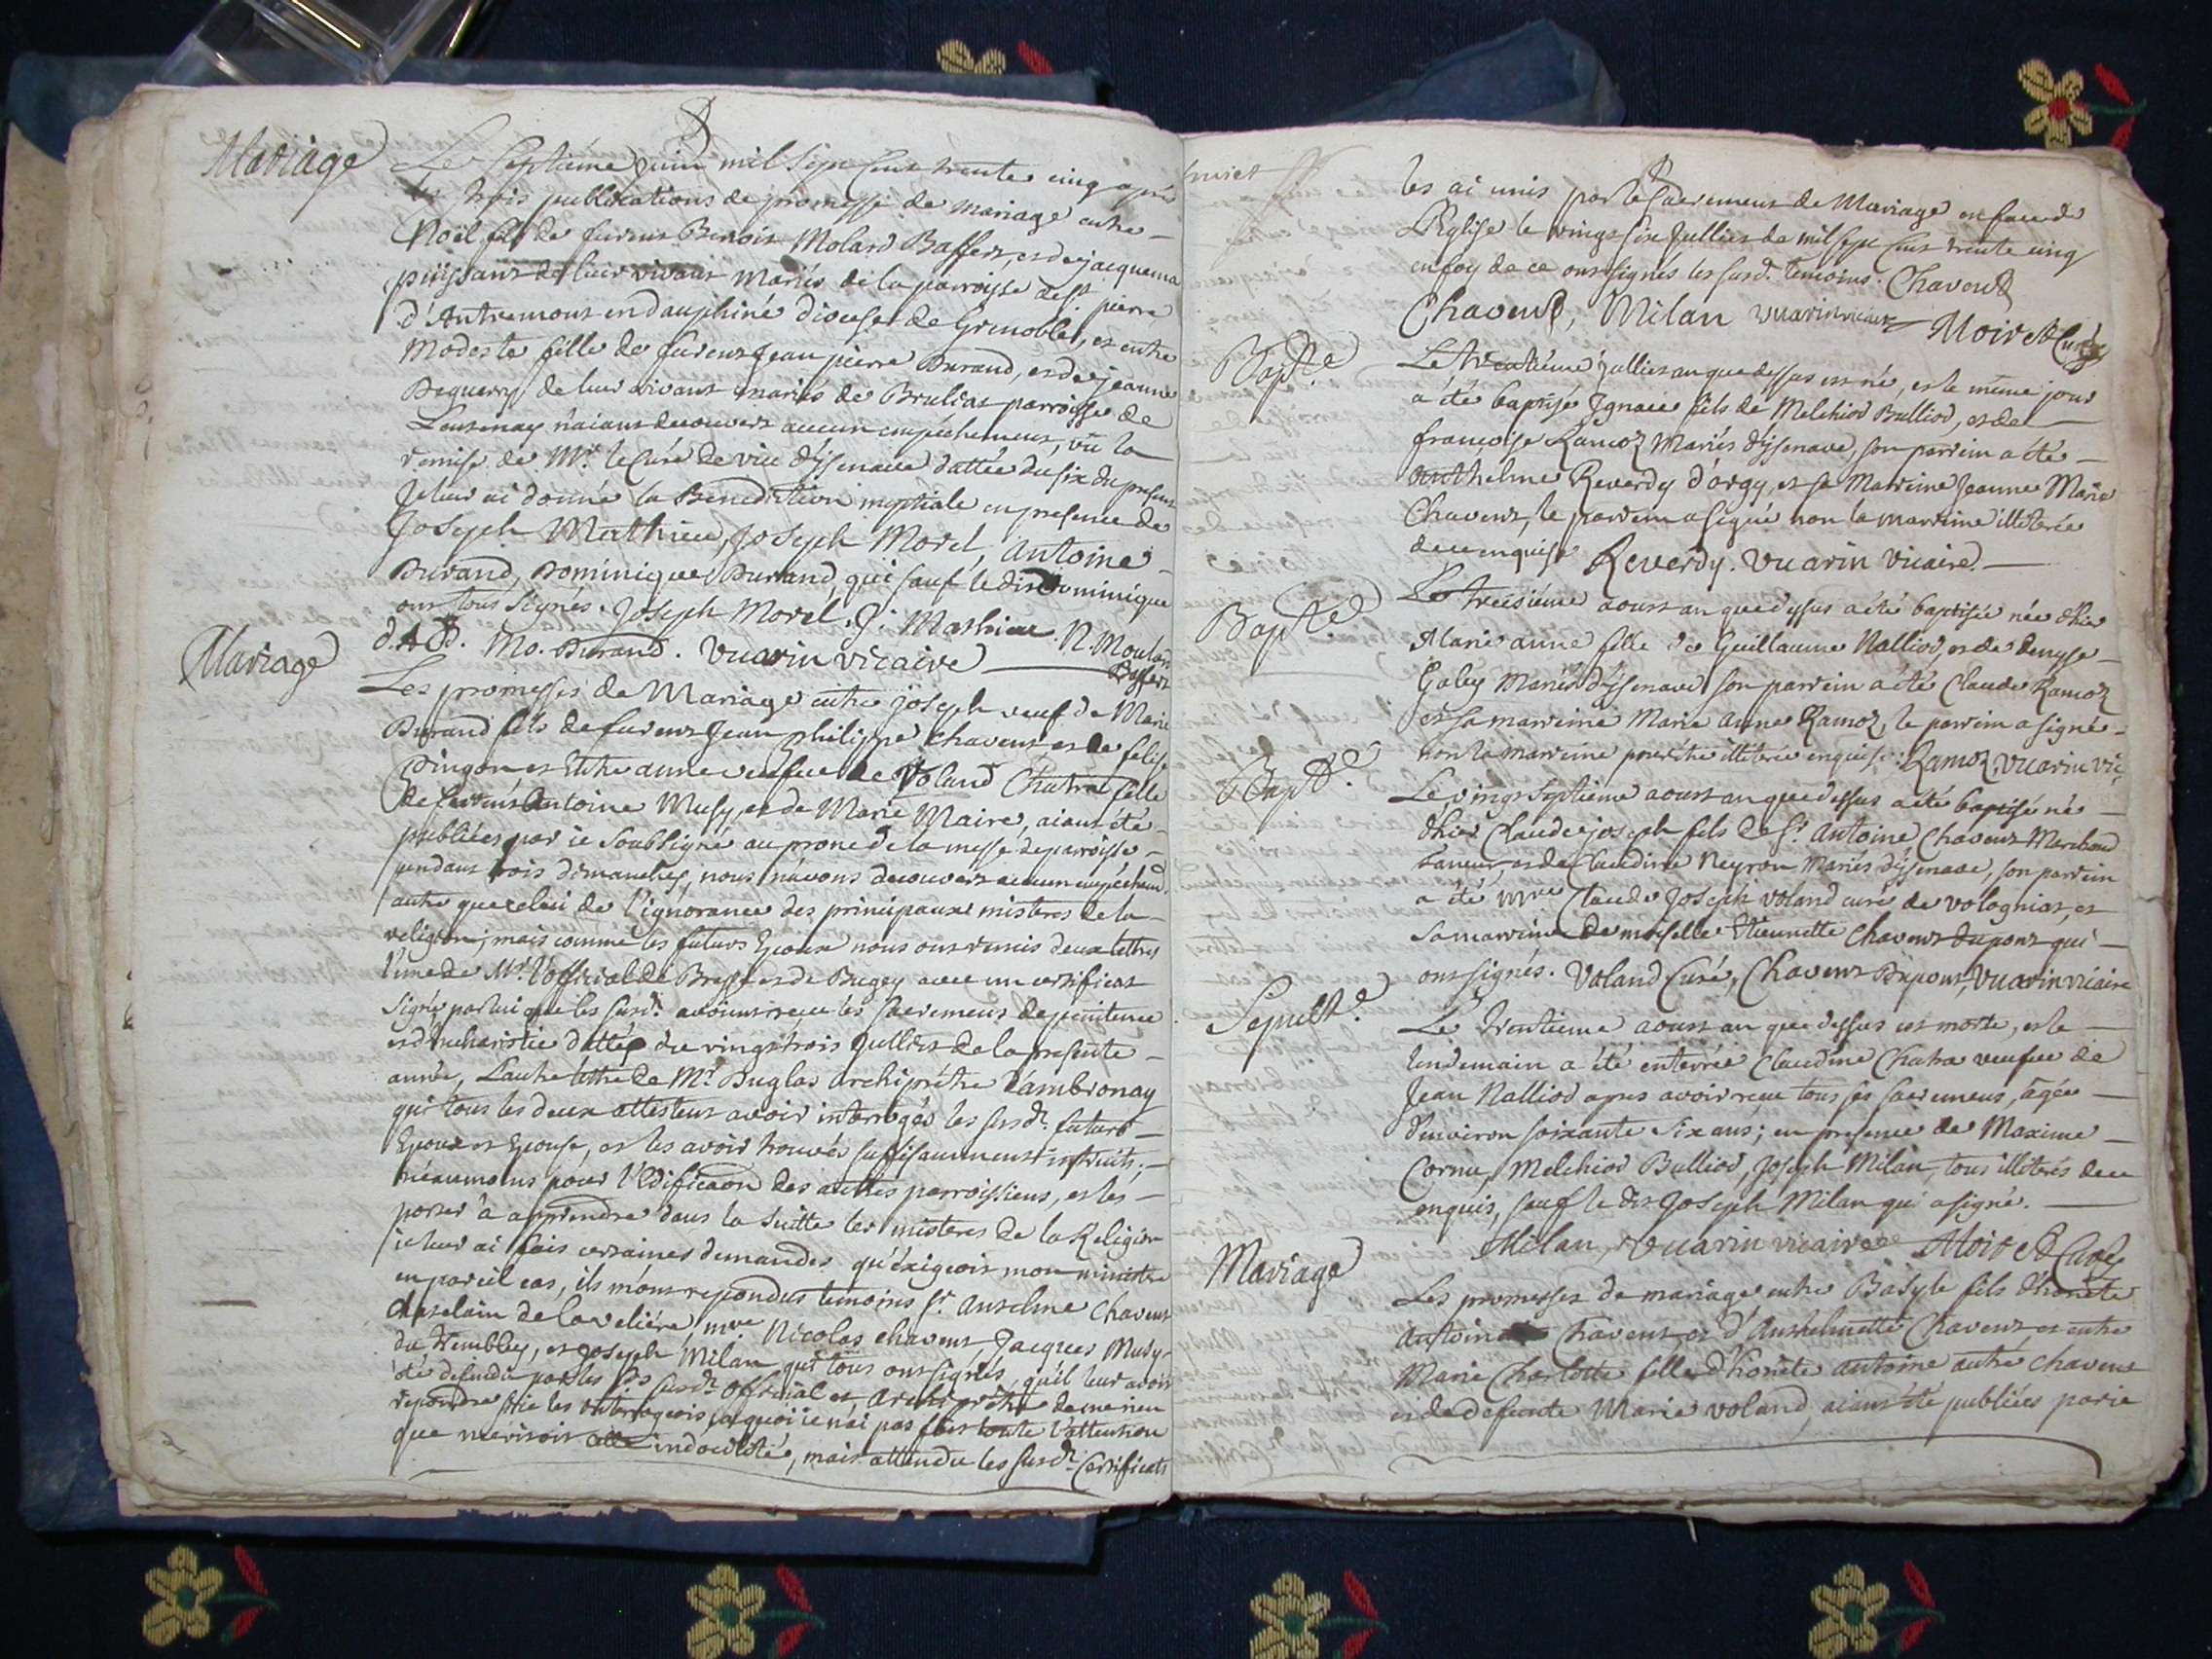 Mariage
Le septiéme juin mil sept cent trente cinq après
les trois publications de promesse de mariage entre
Noël fils de furent Benoit Molard Baffert, et de jacquema
puissant de leur vivant mariés de la parroisse de st pierre
d'Antremont en dauphiné diocese de Grenoble, et entre
Modeste fille de furent Jean pierre Durand, et de jeanne
Deguerry de leur vivant mariés de Brulias parroisse de
n'aiant decouvert aucun empechement, vû la
remise de Mr. le Curé de vieu d'ysenave dattée du six du present
Je leur ai donné la Benediction nuptiale en presence de
Joseph Mathieu, Joseph Morel, antoine
Durand, Dominique Durand, qui sauf le dit Dominique
ont tous signés. Joseph Morel. J. Mathieu. N. Moulard
Baffert
d. A D. Mo. Durand. Vuarin vicaire
Mariage
Les promesses de Mariage entre joseph veuf de Marie
Durand fils de furent Jean Philippe Chavent et de felise
Pingon et Entre anne veufve de Voland Chatra fille
de furent Antoine Musy, et de Marie Maire, aiant été
publiées par ie soubsigné au prone de la messe de parroisse
pendant trois dimanches, nous n'avons decouvert aucun empechemt.
autre que celui de l'ignorance des principaux misteres de la
religion; mais comme les futurs Epoux nous ont remis deux lettres
l'une de Mr. l'official de Bresse et de Bugey avec un certificat
signé par lui que les susds. avoient receu les sacremens de penitence
et d'eucharistie datté du vingt trois Julliet de la presente
année, L'autre lettre de Mr. Buglas archiprétre d'ambronay
qui tous les deux attestent avoir interrogés les susds. futurs
Epoux et Epouse, et les avoir trouvés suffisamment instruits;
néanmoins pour l'Edificaon des autres parroissiens, et les
porter à apprendre dans la suitte les misteres de la Religion
ie leur ai fait certaines demandes qu'éxigeoit mon ministere
en pareil cas, ils m'ont repondus temoins sr. Anselme Chavent
Chatelain de la veliére, mre Nicolas chavent, Jacques Musy
du tremblay, et joseph Milan qui tous ont signés, qu'il leur avoit
été defendu par les susds. Official et Archiprétre de me rien
repondre si ie les interrogeois, à quoi ie n'ai pas fait toute l'attention
que meritoit indocilité, mais attendu les susds. Certificats
les ai unis par le sacrement de Mariage en face de
l'Eglise le vingt six Julliet de mil sept cent trente cinq
en foy de ce ont signés les susd. temoins. Chavent
Chavent, Milan Vuarin vicaire Moiret Curé
Bapte.
Le trentiéme julliet an que dessus est né, et le même jour
a été baptisé Ignace fils de Melchior Bulliod, et de
françoise Ramoz Mariés d'ysenave, son parrein a été
Anthelme Reverdy d'orgy, et sa Marreine Jeanne Marie
Chavent, le parrein a signé non la marreine illiterée
de ce enquise Reverdy. Vuarin Vicaire.
Bapte
Le treisiéme aoust an que dessus a été baptisée née d'hier
Marie anne fille de Guillaume Nalliod, et de denyse
Gaby Mariés d'ysenave son parrein a été Claude Ramoz
et sa marreine Marie Anne Ramoz, le parrein a signé
non la marreine pour être illiterée enquise: Ramoz. Vuarin vic.
Bapte.
Le vingt septiéme aoust an que dessus a été baptisé né
d'hier Claude joseph fils de sr. Antoine Chavent Marchand
Taneur, et de Claudine Neyron Mariés d'ysenave, son parrein
a été mre Claude Joseph Voland curé de volognat, et
sa marreine demoiselle Etiennette Chavent dupont qui
ont signés. Voland Curé, Chavent Dupont, Vuarin vicaire
Sepultre.
Le trentieme aoust an que dessus est morte, et le
lendemain a été enterrée Claudine Chatra veufve de
Jean Nalliod apres avoir receu tous ses sacremens, âgée
d'environ soixante six ans; en presence de Maxime
Cornu, Melchior Bulliod, Joseph Milan, tous illiterés de ce
enquis, sauf le dit Joseph Milan qui a signé.
Milan, Vuarin vicaire Moiret Curé
Mariage
Les promesses de mariage entre Basyle fils d'honete
Antoine Chavent et d'Anthelmette Chavent, et entre
Marie Charlotte fille d'honete antoine autre chavent
et de defunte Marie Voland, aiant été publiées par ie